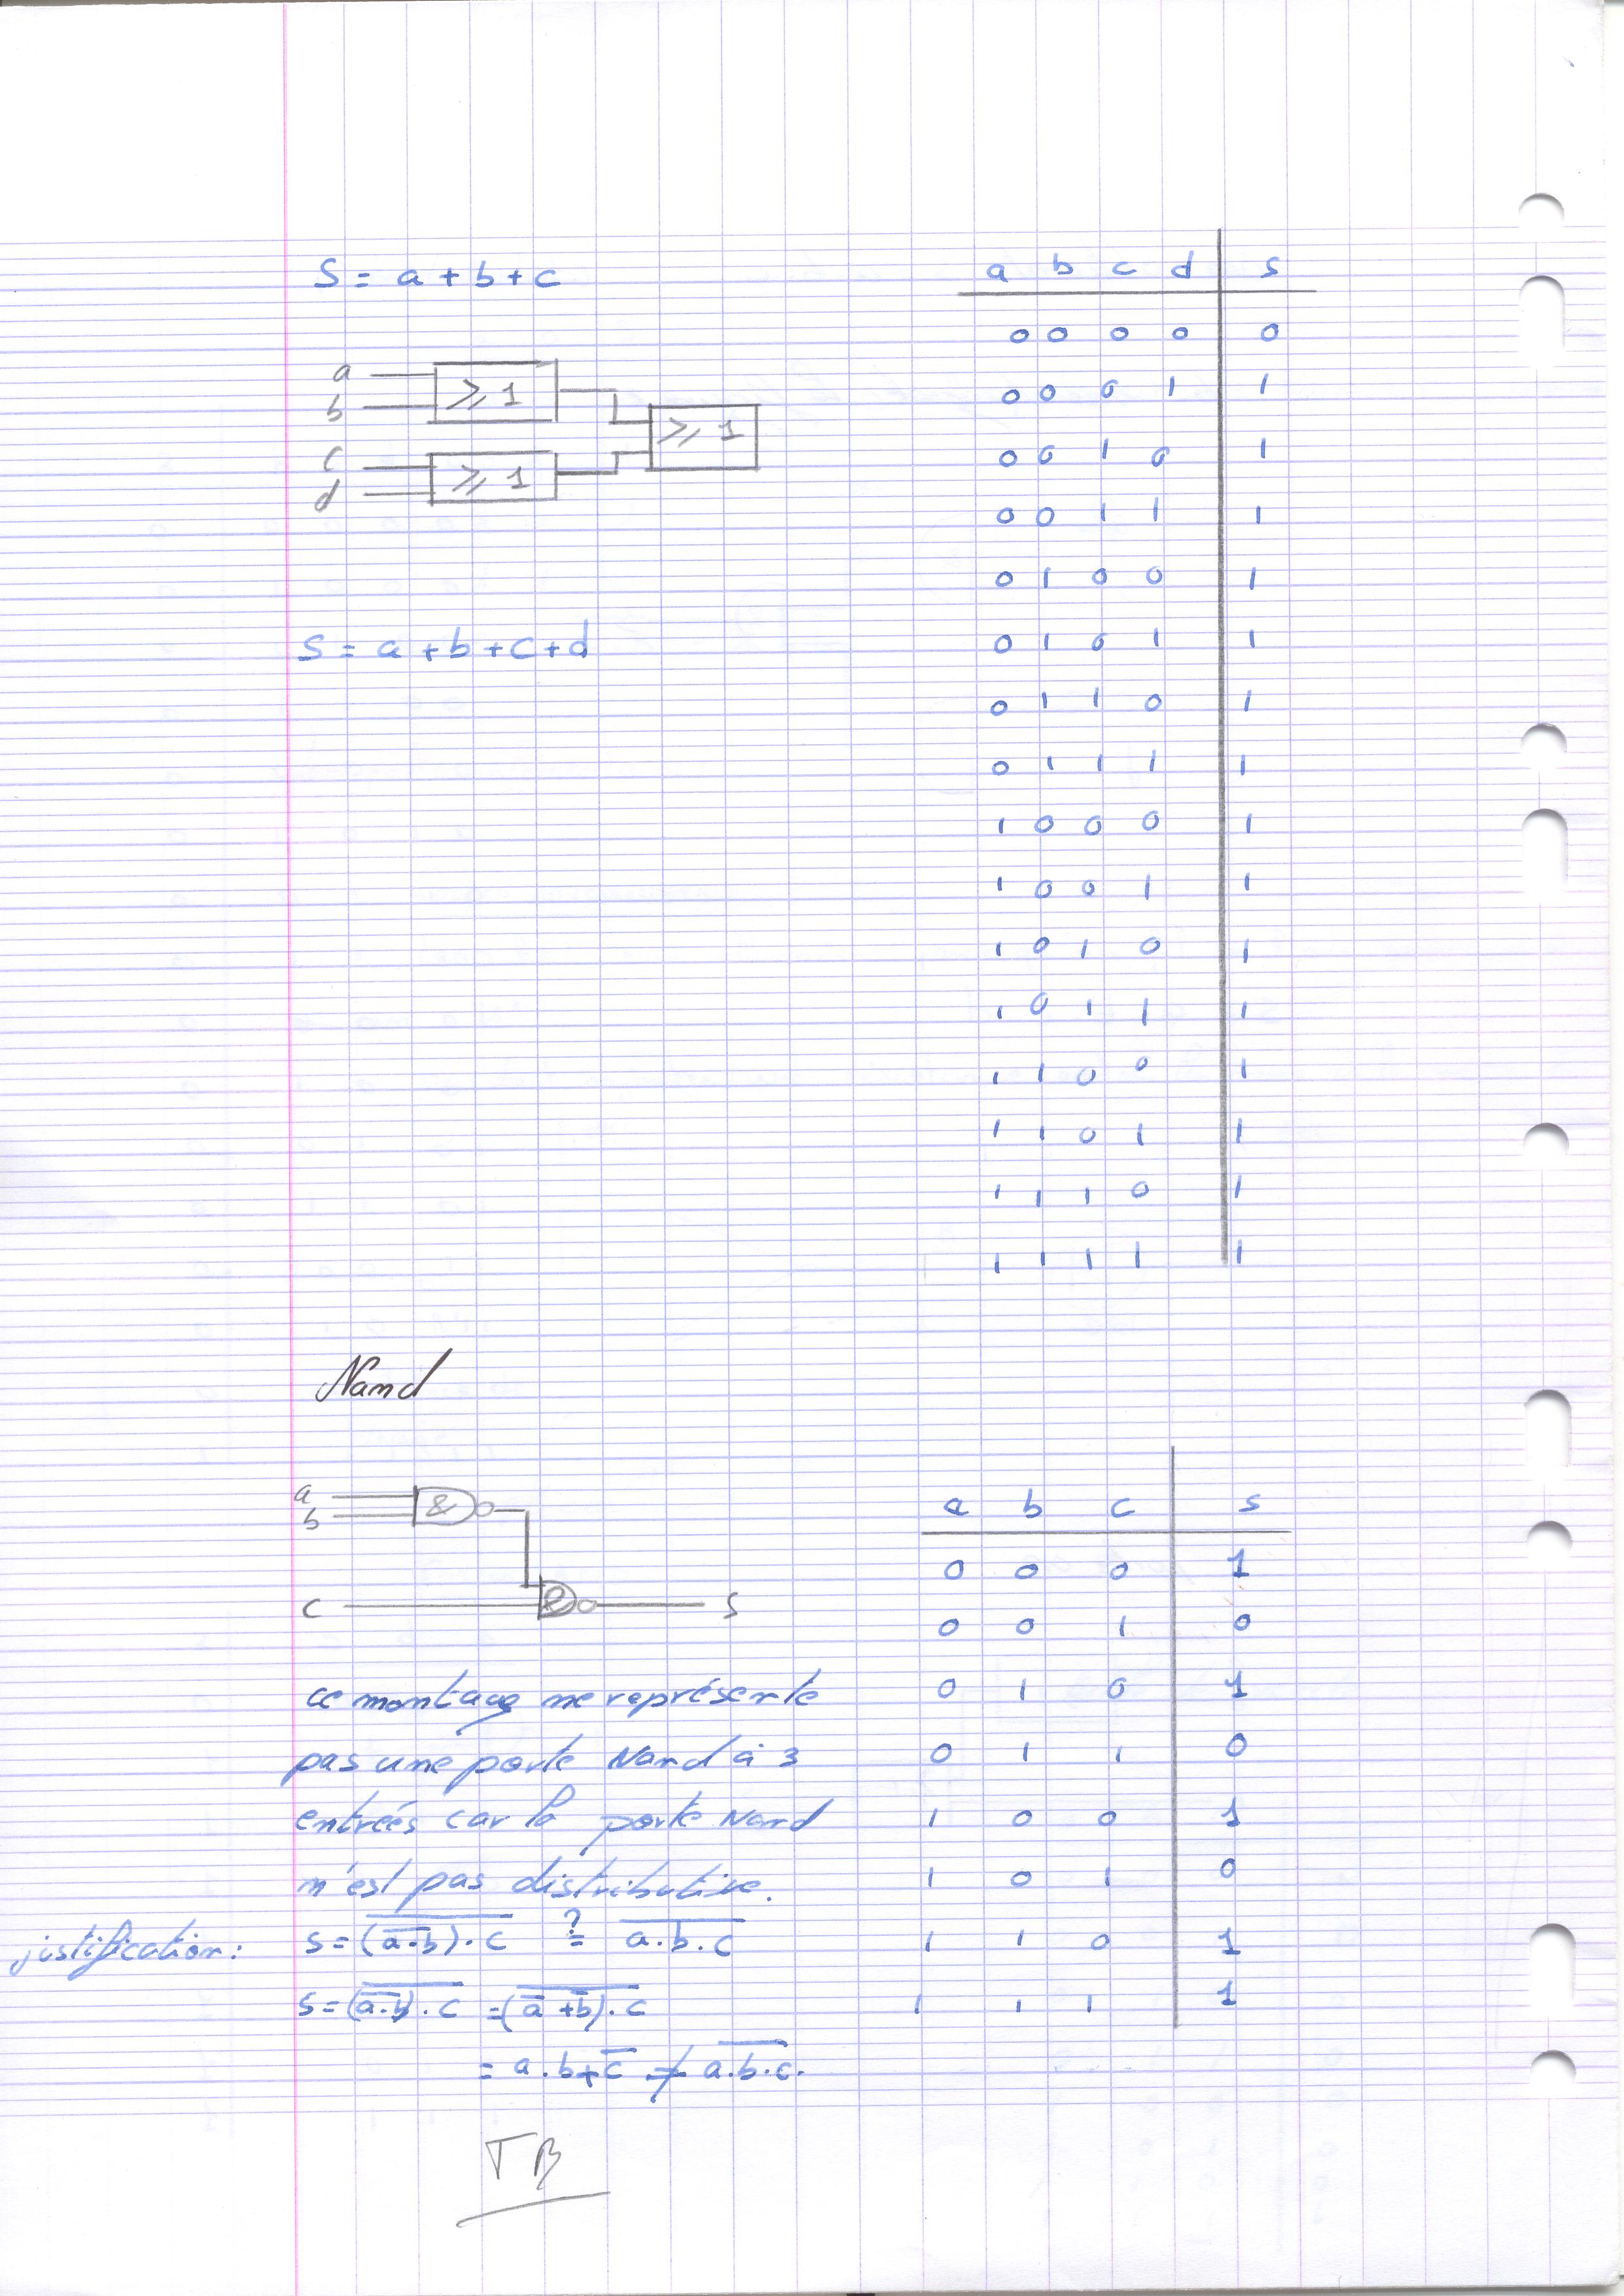 S = a + b + c
a
b
c
d
≥ 1
≥ 1
≥ 1
S = a + b + c + d
a b c d s
0 0 0 0 0
0 0 0 1 1
0 0 1 0 1
0 0 1 1 1
0 1 0 0 1
0 1 0 1 1
0 1 1 0 1
0 1 1 1 1
1 0 0 0 1
1 0 0 1 1
1 0 1 0 1
1 0 1 1 1
1 1 0 0 1
1 1 0 1 1
1 1 1 0 1
1 1 1 1 1
Nand
a
b
&
c
&
s
ce montage ne représente
pas une porte Nand à 3
entrées car la porte Nand
n'est pas distributive.
justification: s = \overline{(\overline{a.b}).c} ?= \overline{a.b.c}
s = \overline{(\overline{a.b}).c} = \overline{(\overline{a}+\overline{b}).c}
= a.b+\overline{c} ≠ \overline{a.b.c}.
a b c s
0 0 0 1
0 0 1 0
0 1 0 1
0 1 1 0
1 0 0 1
1 0 1 0
1 1 0 1
1 1 1 1
TB